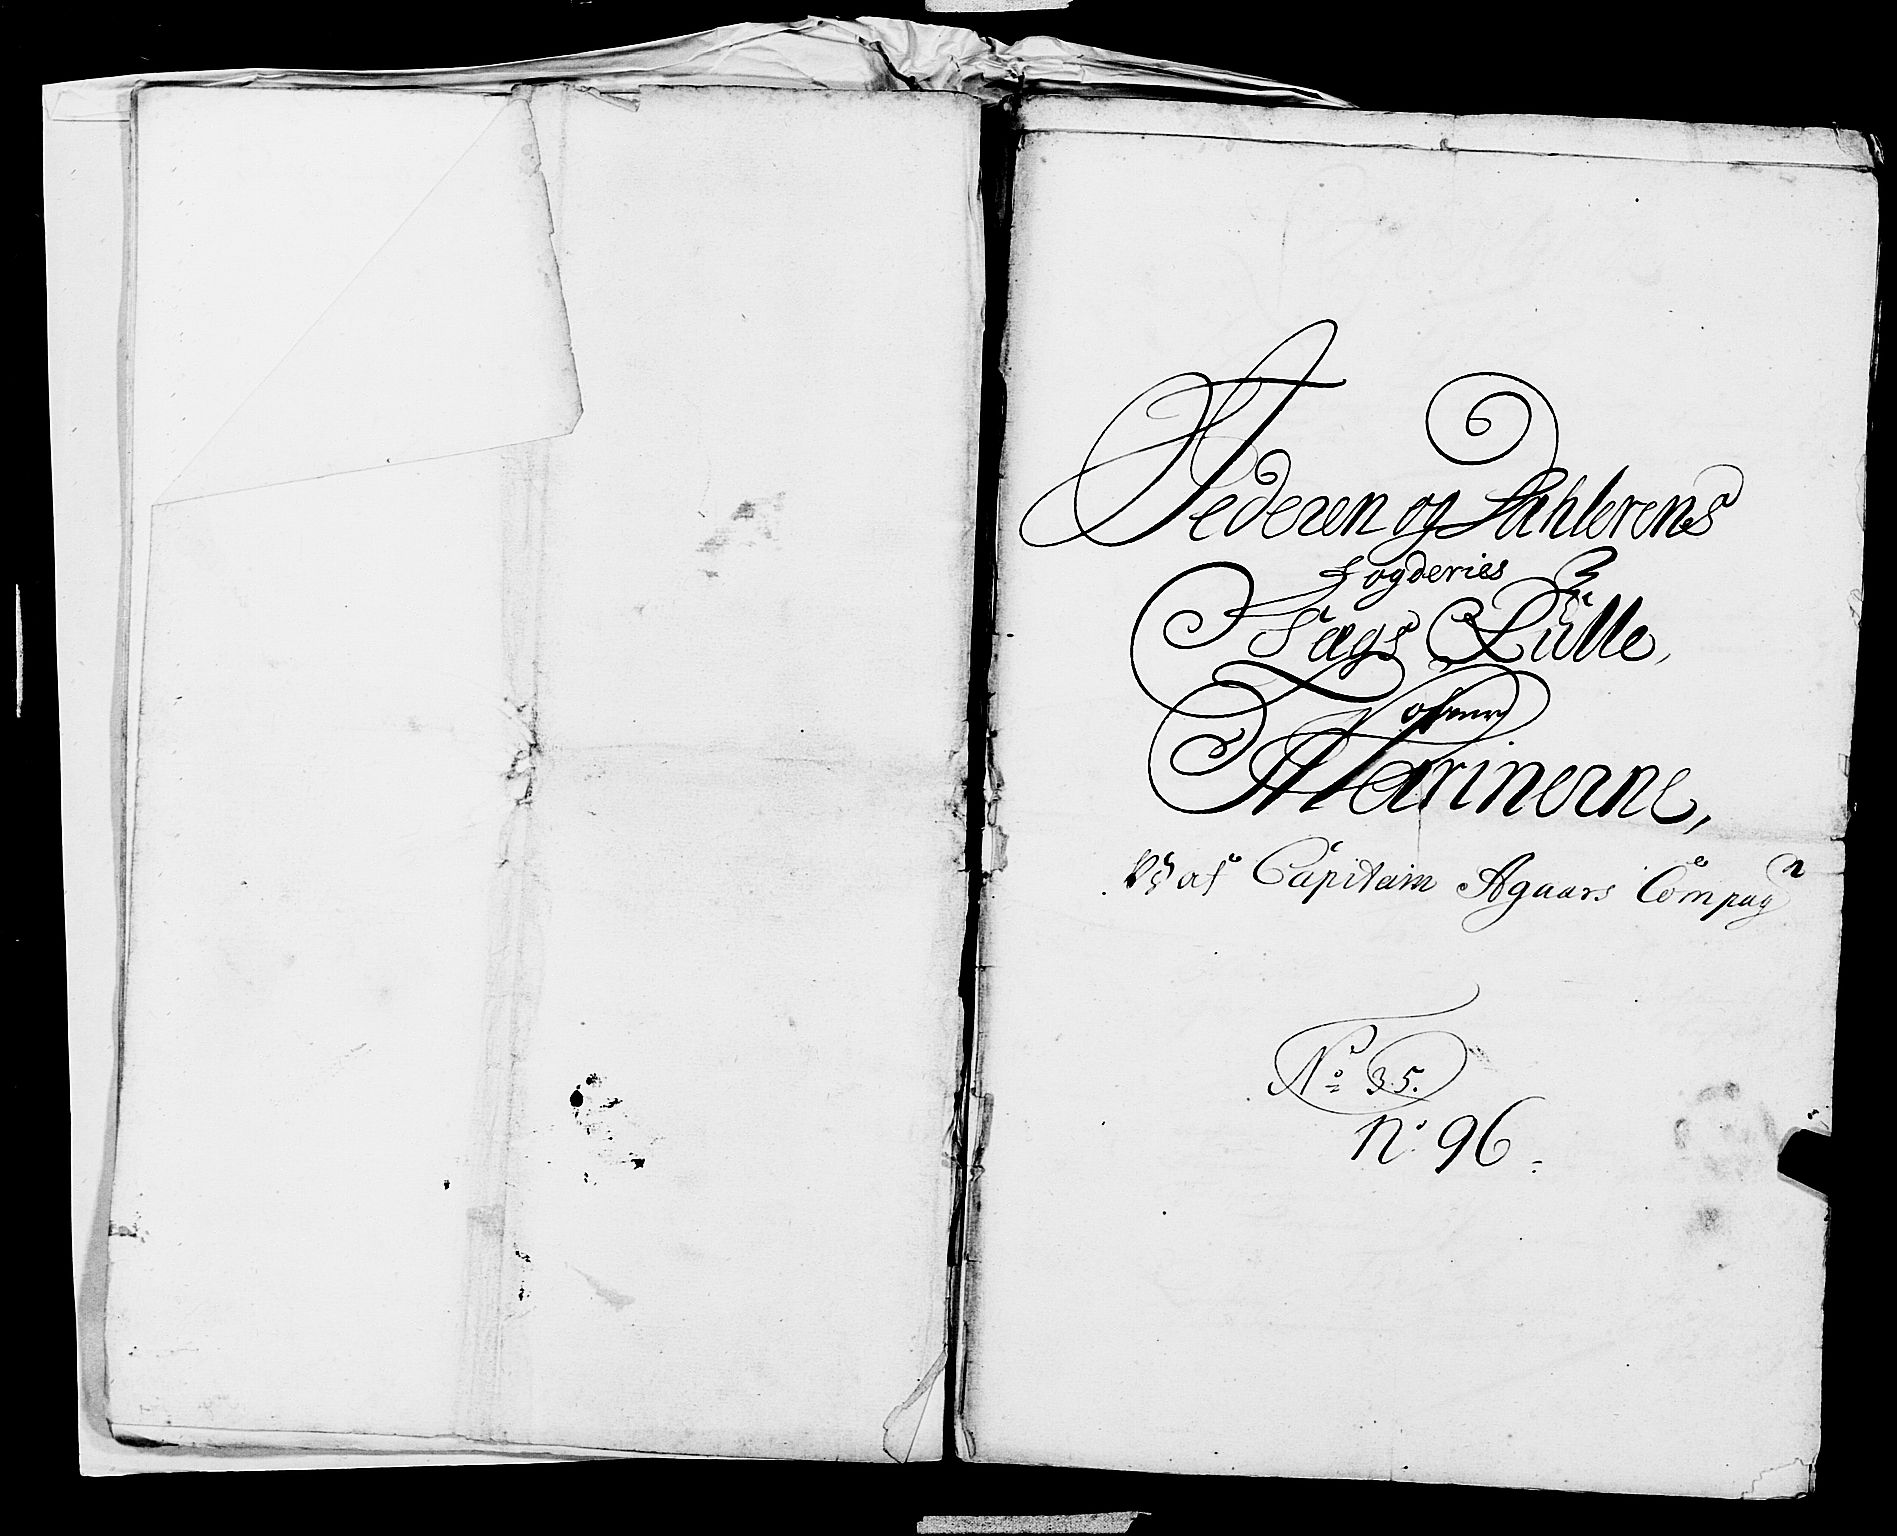 Jederen og Dahlerens
fogderies
Lægs Rülle,
ofver
Marinerne,
af Capitain Agaars Compagn
No 35.
No 96.